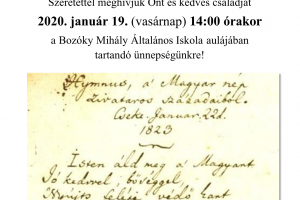 Szeretettel meghívjuk Önt és kedves családját
2020. január 19. (vasárnap) 14:00 órakor
a Bozóky Mihály Általános Iskola aulájában
tartandó ünnepségünkre!
Hymnus, a Magyar nép
zivataros századaiból.
Cseke Januar 22d.
1823
Isten áld meg a Magyart
Jó kedvvel, bőséggel,
Nyújts feléje védő kart